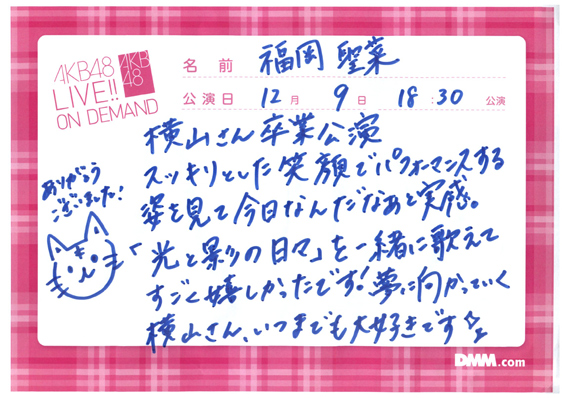 AKB48
LIVE!!
ON DEMAND
AKB
48
名前 福岡聖菜
公演日 12月 9日 18:30 公演
横山さん卒業公演
スッキリとした笑顔でパフォーマンスする
姿を見て今日なんだなぁと実感。
「光と影の日々」を一緒に歌えて
すごく嬉しかったです!夢に向かっていく
横山さん、いつまでも大好きです
ありがとう
ございました!
DMM.com